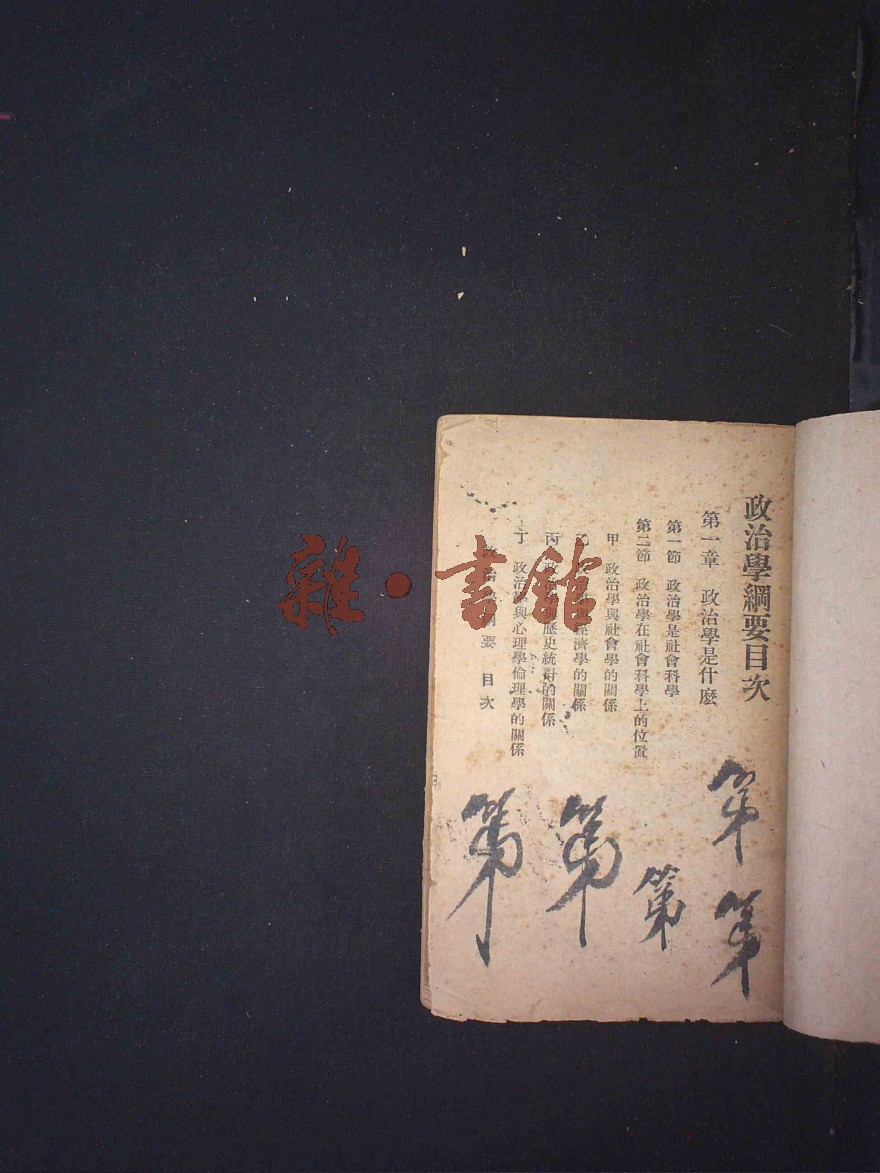 政治學綱要目次
第一章 政治學是什麼
第一節 政治學是社會科學
第二節 政治學在社會科學上的位置
甲 政治學與社會學的關係
乙 經濟學的關係
丙 政治 歷史統計的關係
丁 政治學與心理學倫理學的關係
政治學綱要 目次
第
第
第
第
第
雜·書館